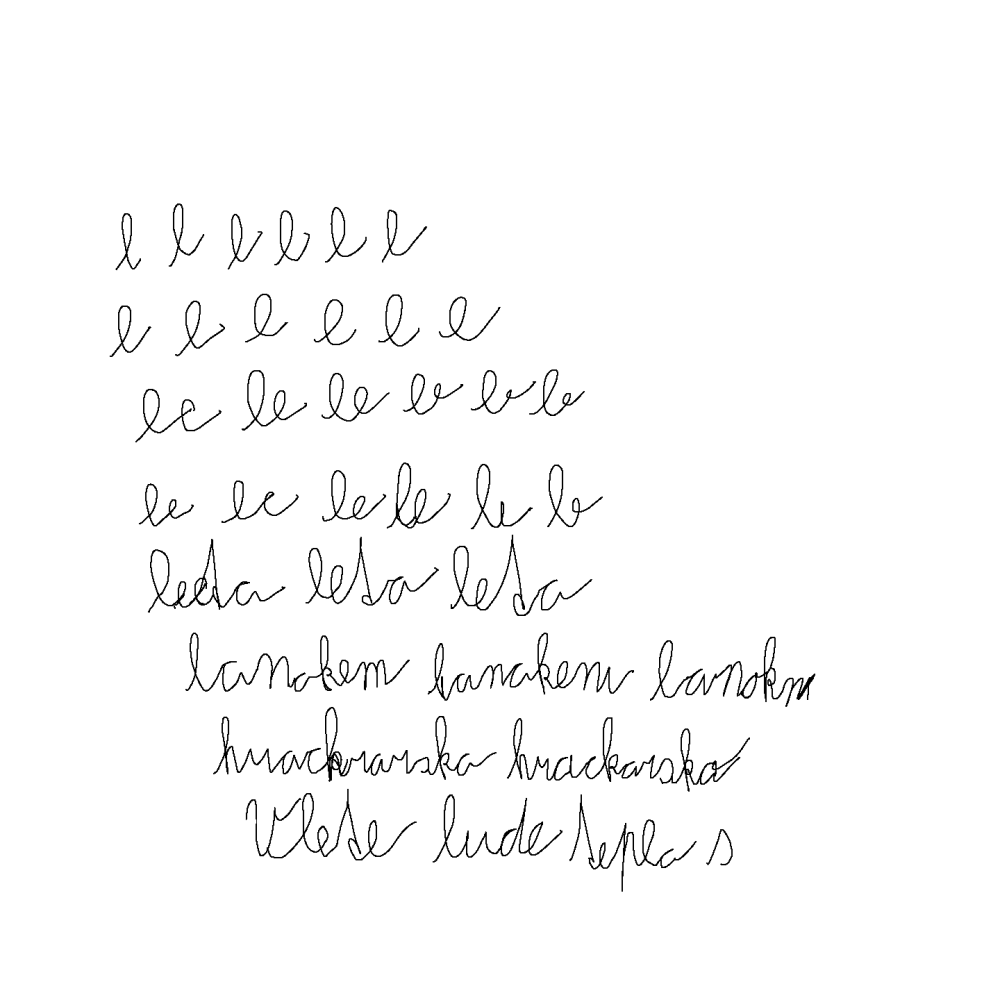 l l l l l l
l l l l l l
le le le le le le
le le le le le le
leta leta leta
lanakem lanakem lanokm
hrackrarska hrackarska
V lete lude tepla s